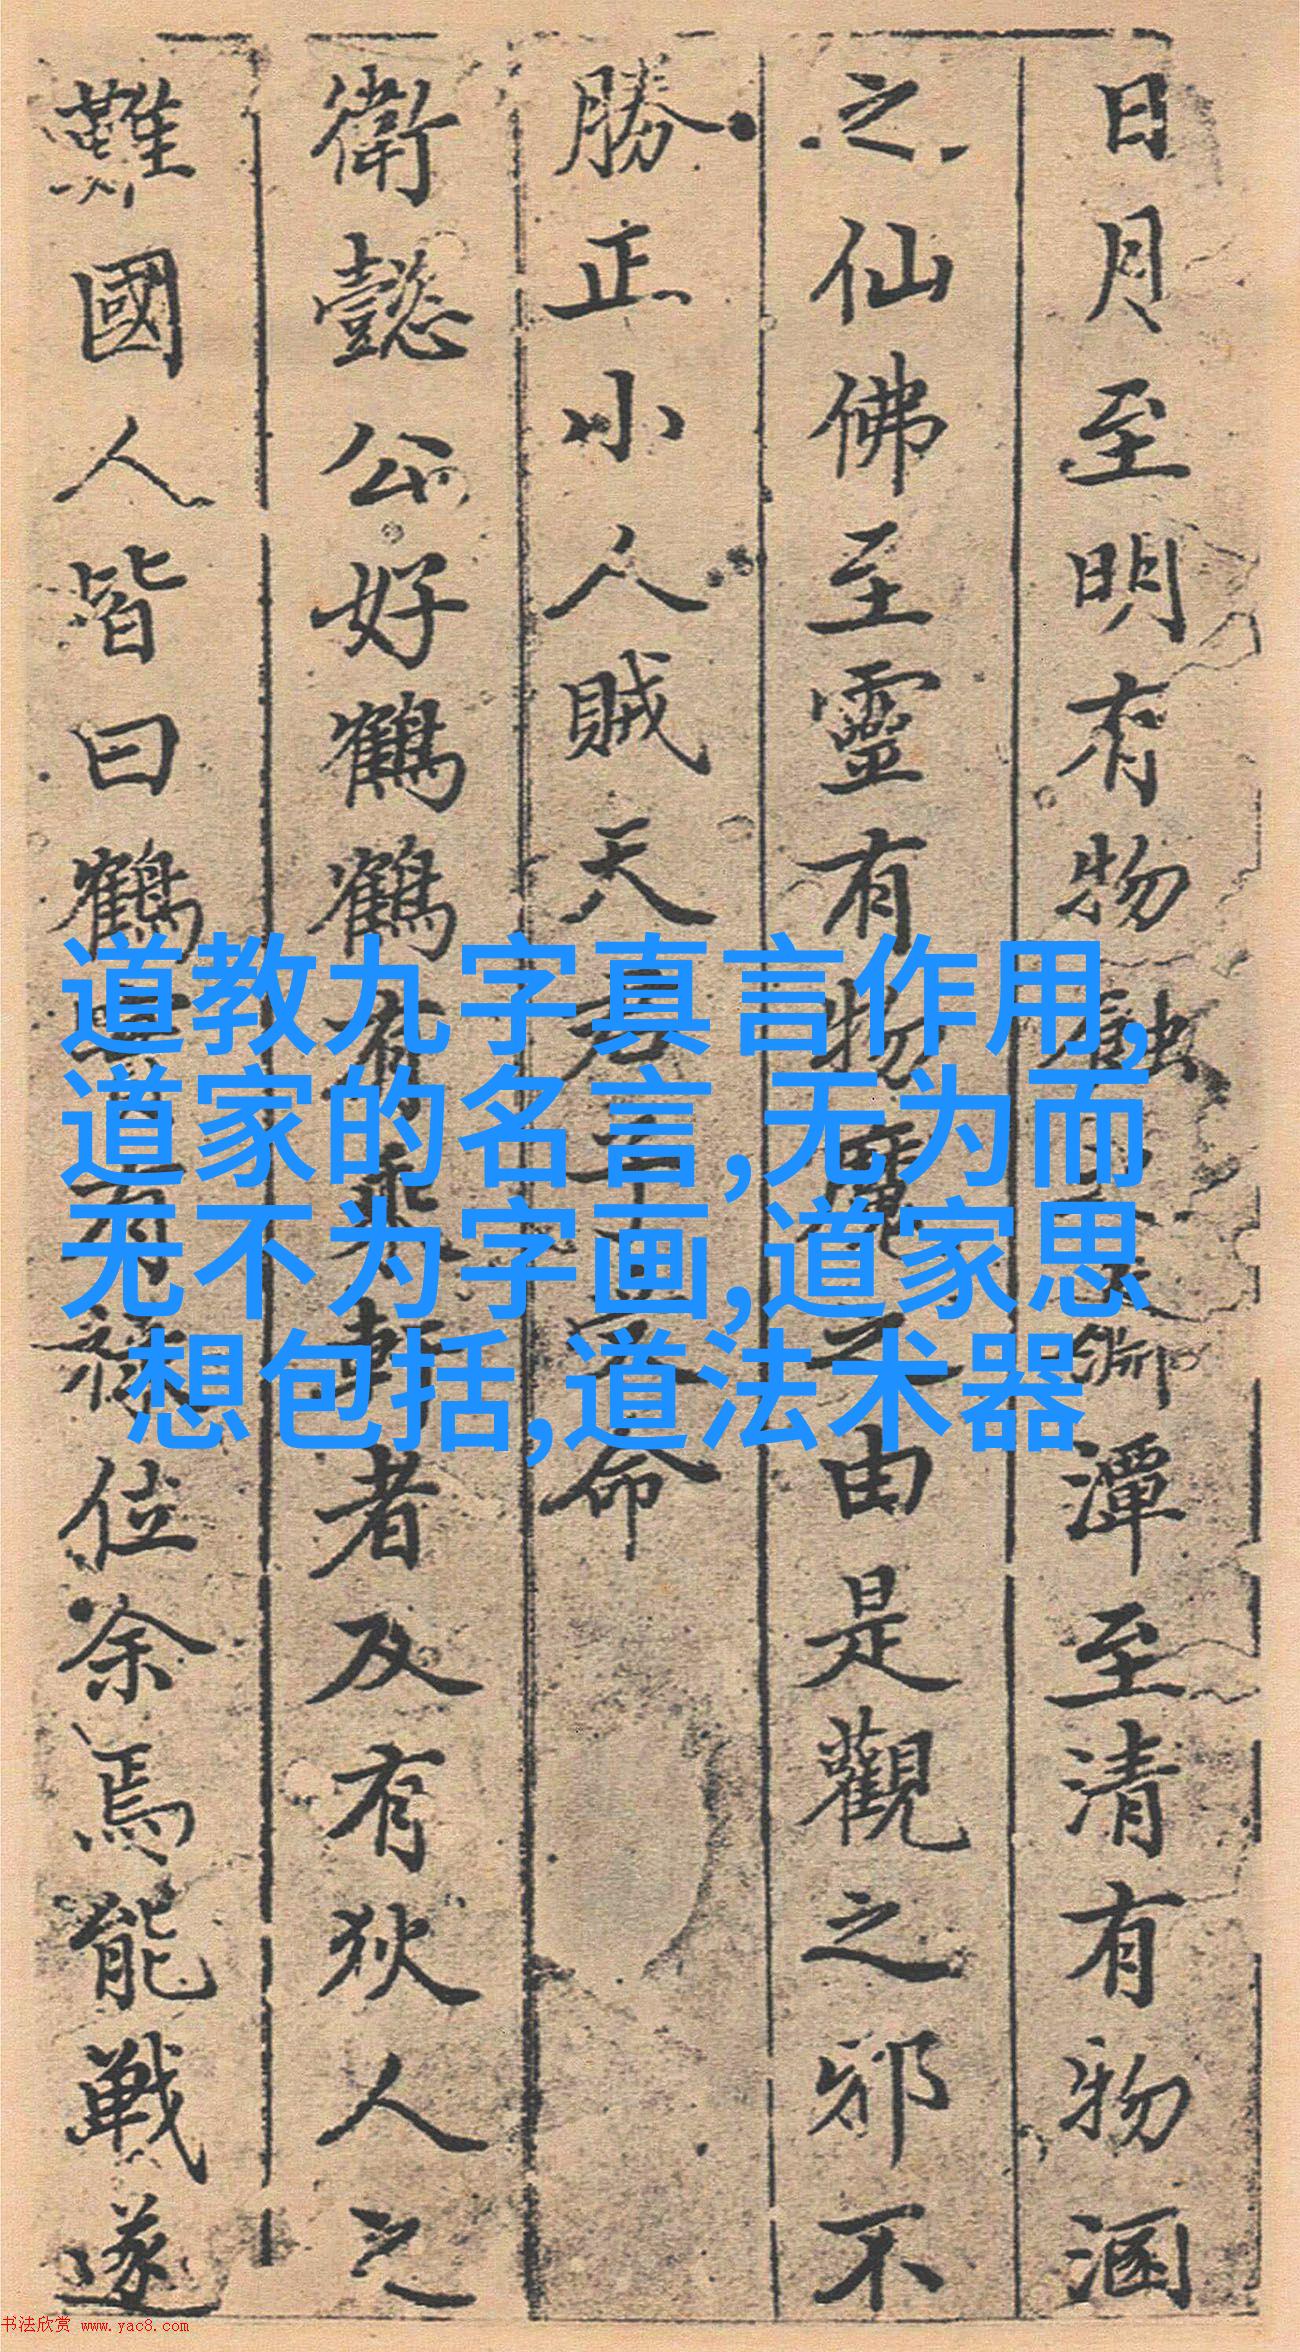 日月至明有物蝕淵潭至清有物涵
之仙佛至靈有物魔之由是觀之邪不
勝正小人賊天命
衛懿公好鶴鶴有乘軒者及有狄人之
難國人皆曰鶴實有祿位余焉能戰遂
道教九字真言作用,
道家的名言,无为而
无不为字画,道家思
想包括,道法术器
书法欣赏 www.yac8.com